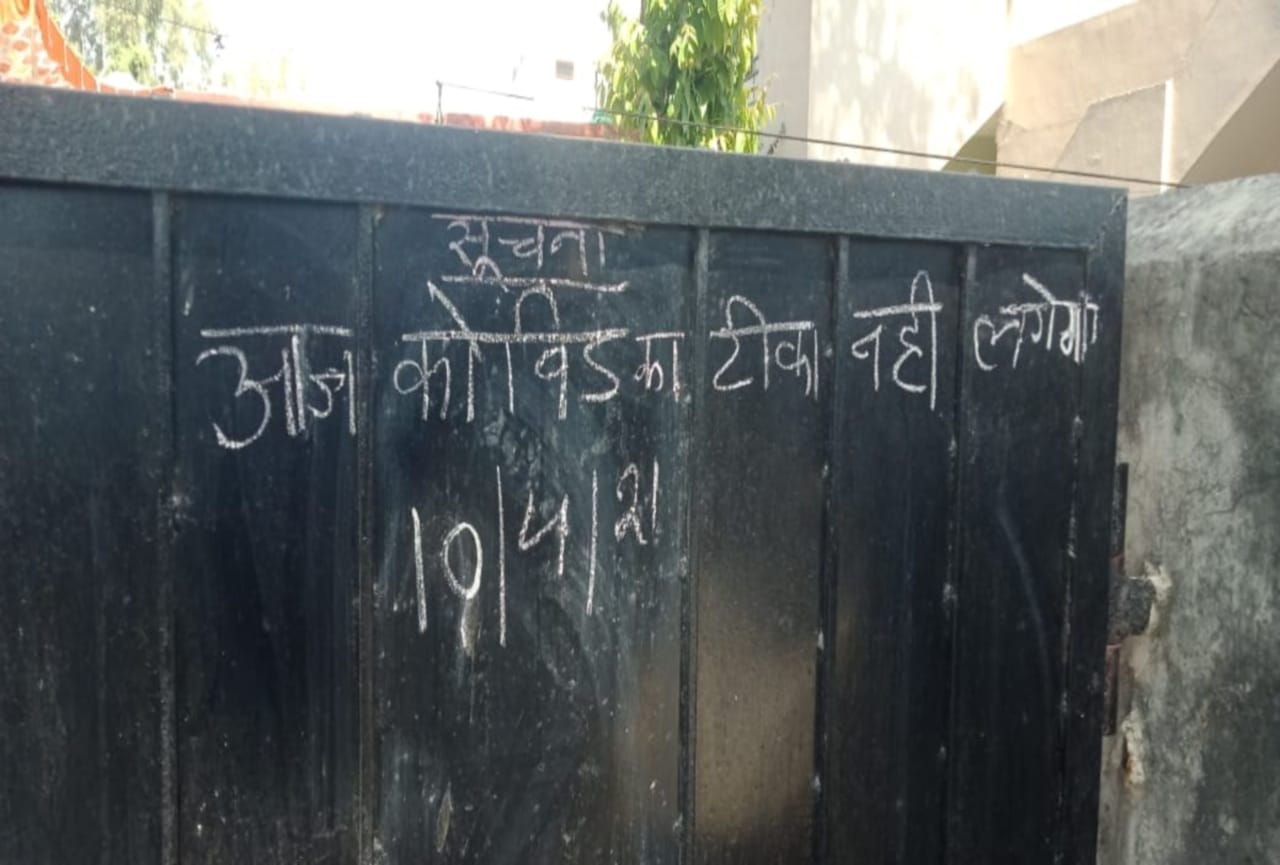 सूचना
आज कोविड का टीका नही लगेगा
10/4/21